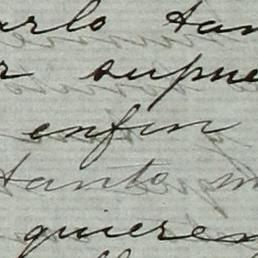 arlo tan
r supue
enfin
tanto m
quieren